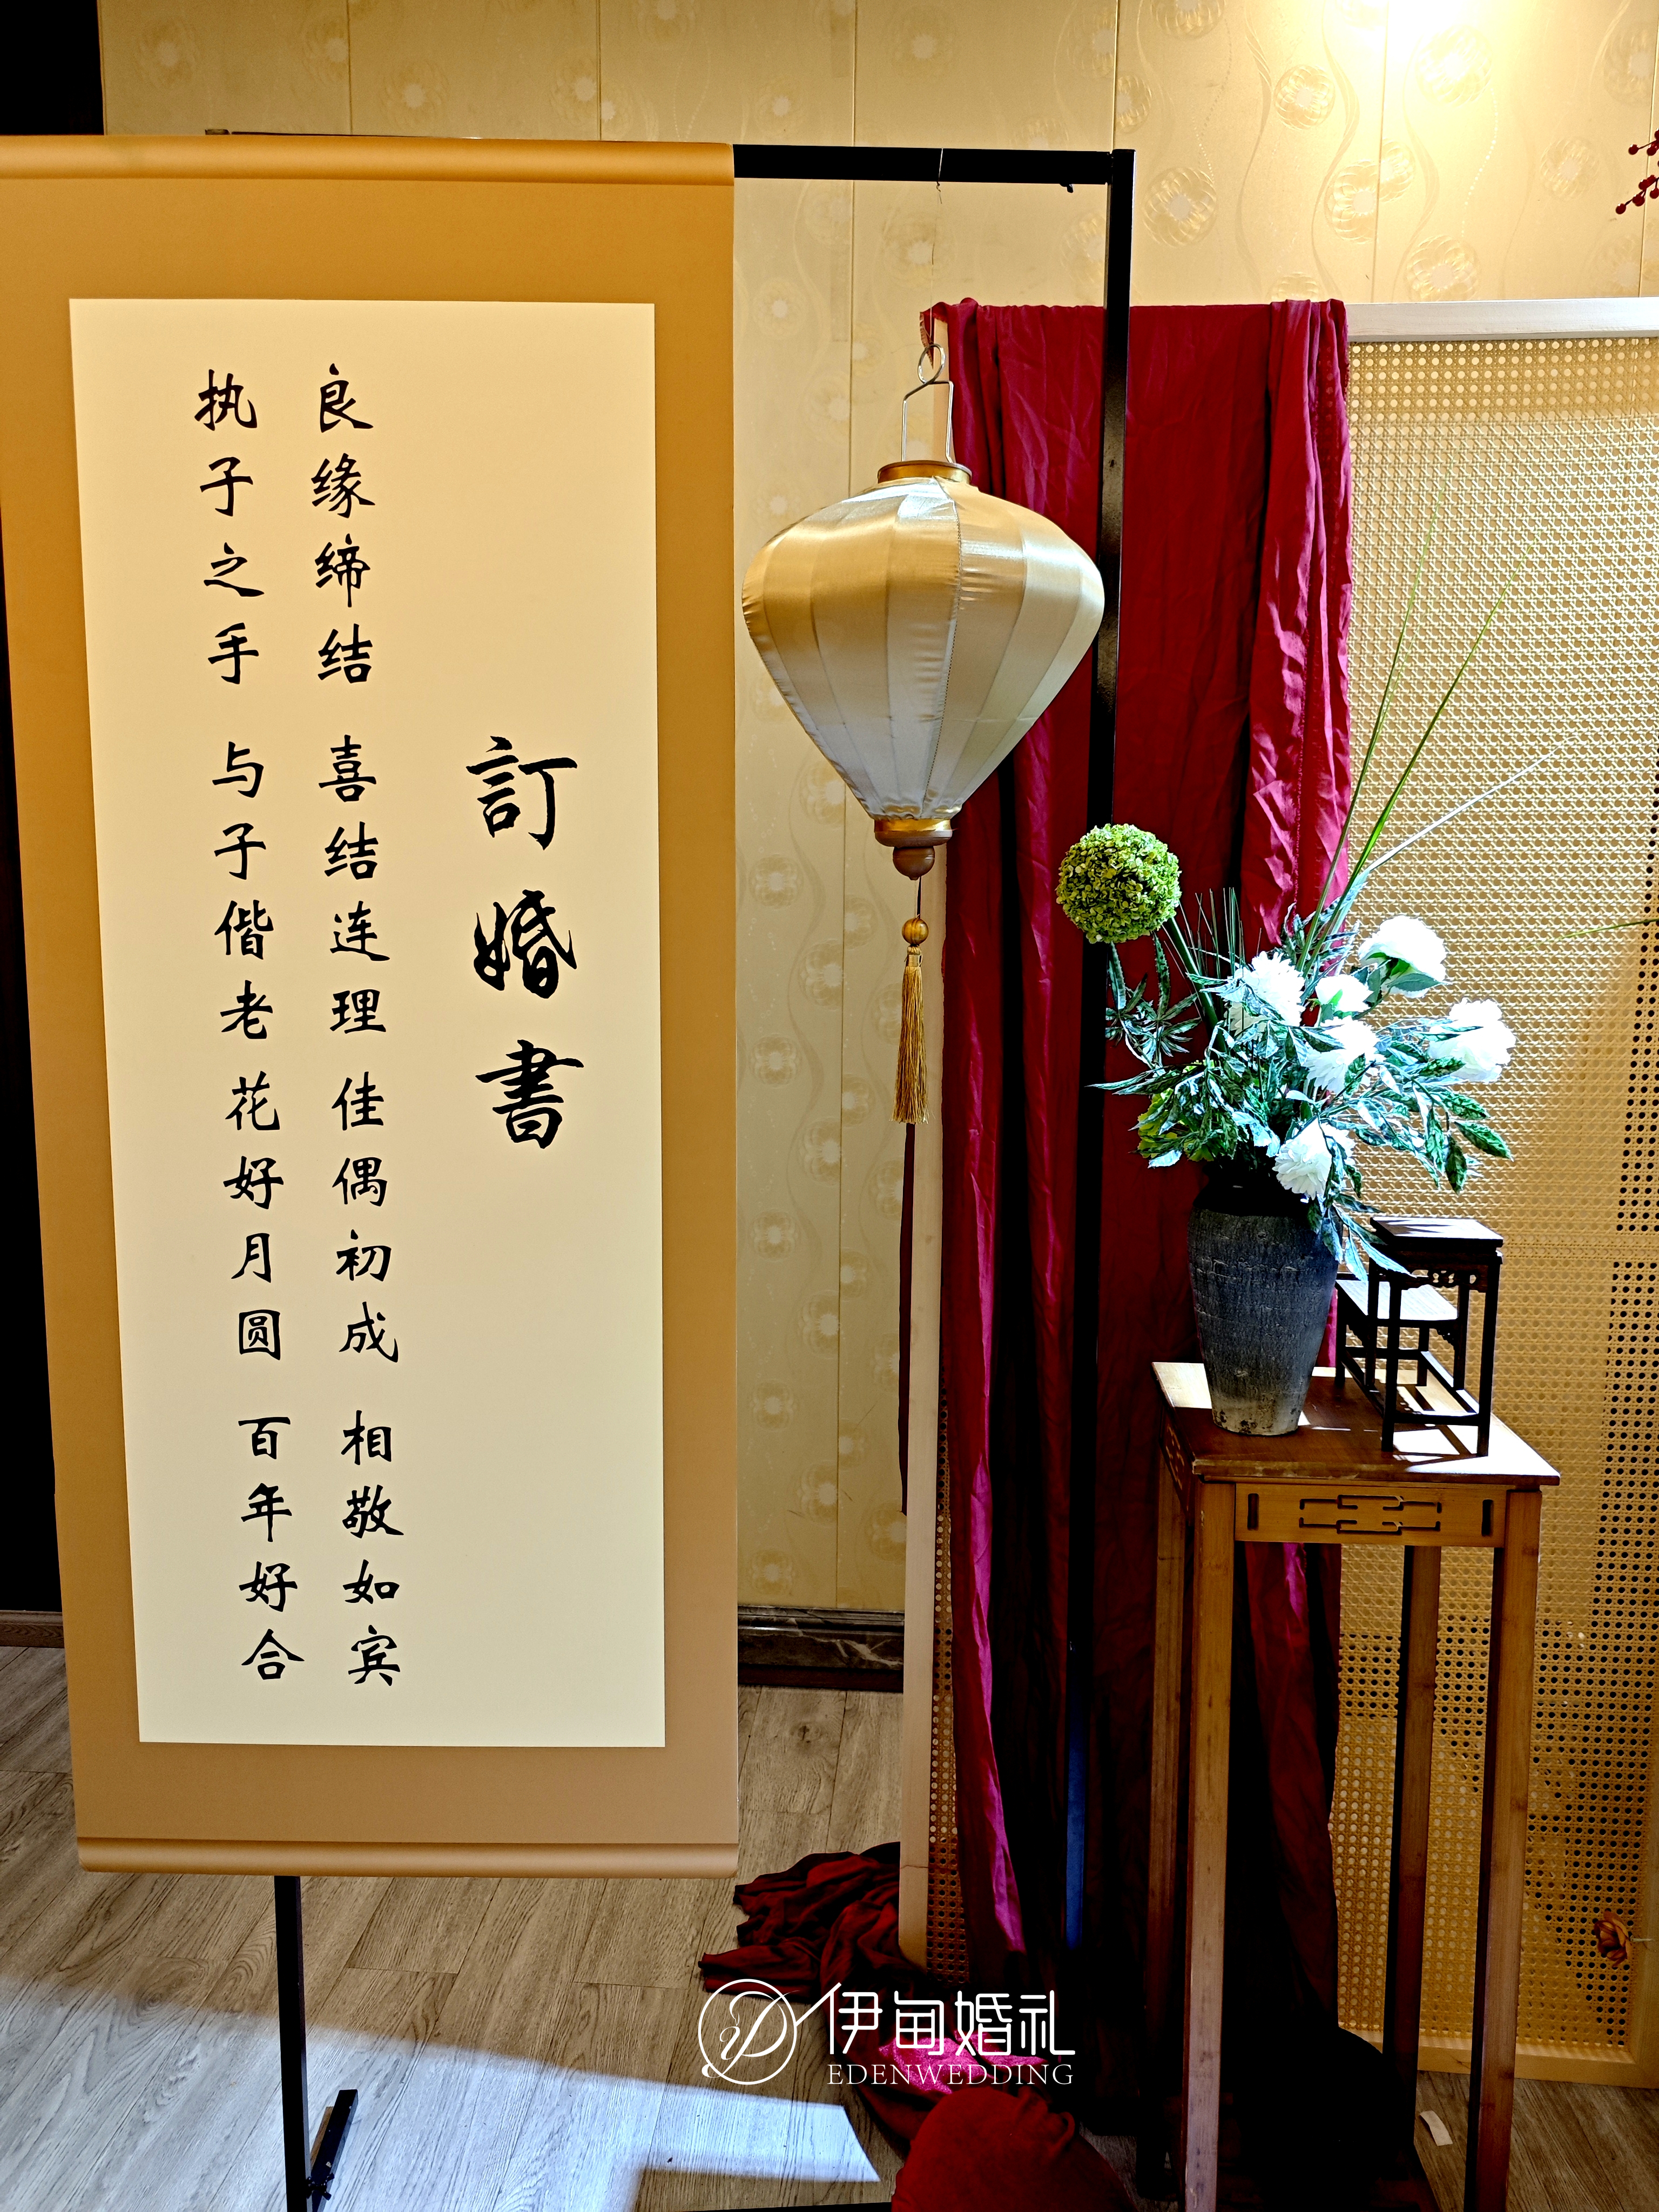 訂婚書
良缘缔结 喜结连理 佳偶初成 相敬如宾
执子之手 与子偕老 花好月圆 百年好合
伊甸婚礼
EDENWEDDING